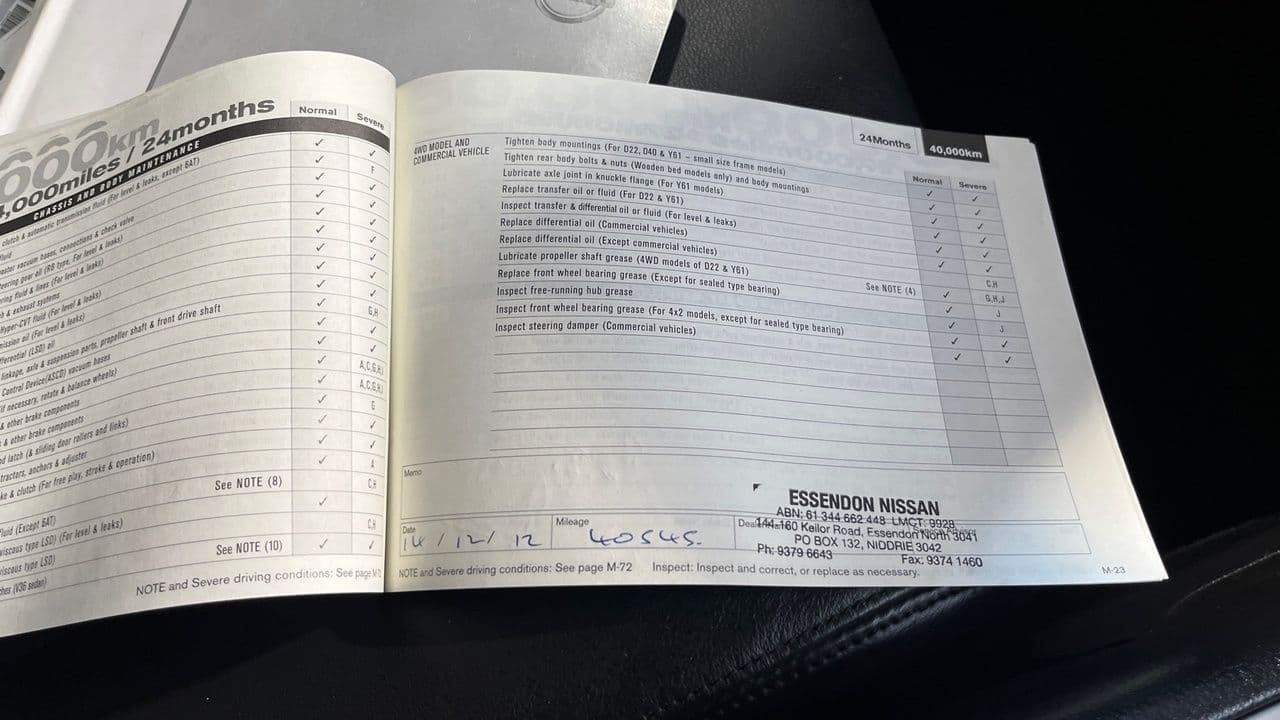 000km
,000miles / 24months
Normal
Severe
CHASSIS AND BODY MAINTENANCE
clutch & automatic transmission fluid (For level & leaks, except 6AT)
✓ ✓
fluid
✓ F
vacuum hoses, connections & check valve
✓ ✓
steering gear oil (RB type, For level & leaks)
✓ ✓
fluid & lines (For level & leaks)
✓ ✓
& exhaust systems
✓ ✓
Hyper-CVT fluid (For level & leaks)
✓ ✓
oil (For level & leaks)
✓ ✓
(LSD) oil
✓ G,H
linkage, axle & suspension parts, propeller shaft & front drive shaft
✓ ✓
Control Device(ASCD) vacuum hoses
✓ ✓
(if necessary, rotate & balance wheels)
✓ A,C,G,H,I
& other brake components
✓ A,C,G,H,I
& other brake components
✓ G
latch (& sliding door rollers and links)
✓ ✓
anchors & adjuster
✓ ✓
& clutch (For free play, stroke & operation)
✓ A
See NOTE (8)
C,H
fluid (Except 6AT)
✓
viscous type LSD) (For level & leaks)
C,H
viscous type LSD)
See NOTE (10) ✓ ✓
(V36 sedan)
NOTE and Severe driving conditions: See page M-72
24Months 40,000km
Normal Severe
4WD MODEL AND
COMMERCIAL VEHICLE
Tighten body mountings (For D22, D40 & Y61 – small size frame models) ✓ ✓
Tighten rear body bolts & nuts (Wooden bed models only) and body mountings ✓ ✓
Lubricate axle joint in knuckle flange (For Y61 models) ✓ ✓
Replace transfer oil or fluid (For D22 & Y61) ✓ ✓
Inspect transfer & differential oil or fluid (For level & leaks) ✓ ✓
Replace differential oil (Commercial vehicles) C,H
Replace differential oil (Except commercial vehicles) See NOTE (4) G,H,J
Lubricate propeller shaft grease (4WD models of D22 & Y61) ✓ J
Replace front wheel bearing grease (Except for sealed type bearing) ✓ J
Inspect free-running hub grease ✓ ✓
Inspect front wheel bearing grease (For 4x2 models, except for sealed type bearing) ✓ ✓
Inspect steering damper (Commercial vehicles) ✓ ✓
Memo
ESSENDON NISSAN
ABN: 61 344 662 448 LMCT: 9928
144-160 Keilor Road, Essendon North 3041
PO BOX 132, NIDDRIE 3042
Ph: 9379 6643 Fax: 9374 1460
Date
14 / 12 / 12
Mileage
40545.
NOTE and Severe driving conditions: See page M-72 Inspect: Inspect and correct, or replace as necessary.
M-23